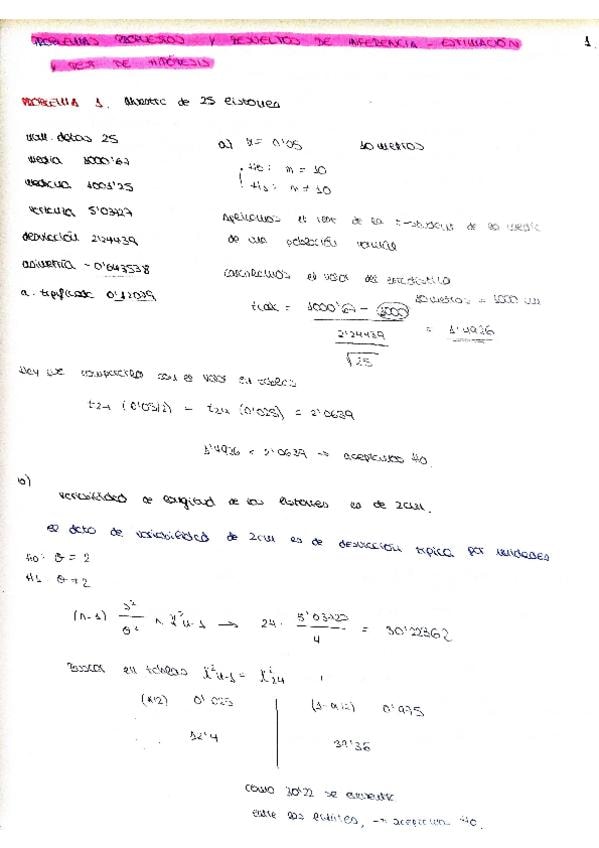 PROBLEMAS PROPUESTOS Y RESUELTOS DE INFERENCIA - ESTIMACIÓN 1.
Y TEST DE HIPÓTESIS
PROBLEMA 1. Muestra de 25 listones
num. datos 25
media 1000'67
mediana 1001'25
varianza 5'03727
desviación 2'24439
asimetría - 0'643538
a. tipificada 0'12039
a) α = 0'05 10 metros
H0: m = 10
H1: m ≠ 10
Aplicamos el test de la t-student de la media
de una población normal
calculamos el valor del estadístico
tcal = 1000'67 - 1000 10 metros = 1000 cm
2'24439 = 1'4926
√25
Hay que compararlo con el valor en tablas
t24 (0'05/2) = t24 (0'025) = 2'0639
1'4926 < 2'0639 → aceptamos H0.
b)
variabilidad de longitud de los listones es de 2cm.
El dato de variabilidad de 2cm es de desviación típica por unidades
H0: σ = 2
H1: σ ≠ 2
(n-1) s²/σ² ~ χ²n-1 → 24 · 5'03727/4 = 30'22362
Buscar en tablas χ²n-1 = χ²24
(α/2) 0'025 (1-α/2) 0'975
12'4 39'36
como 30'22 se encuentra
entre los límites, → aceptamos H0.